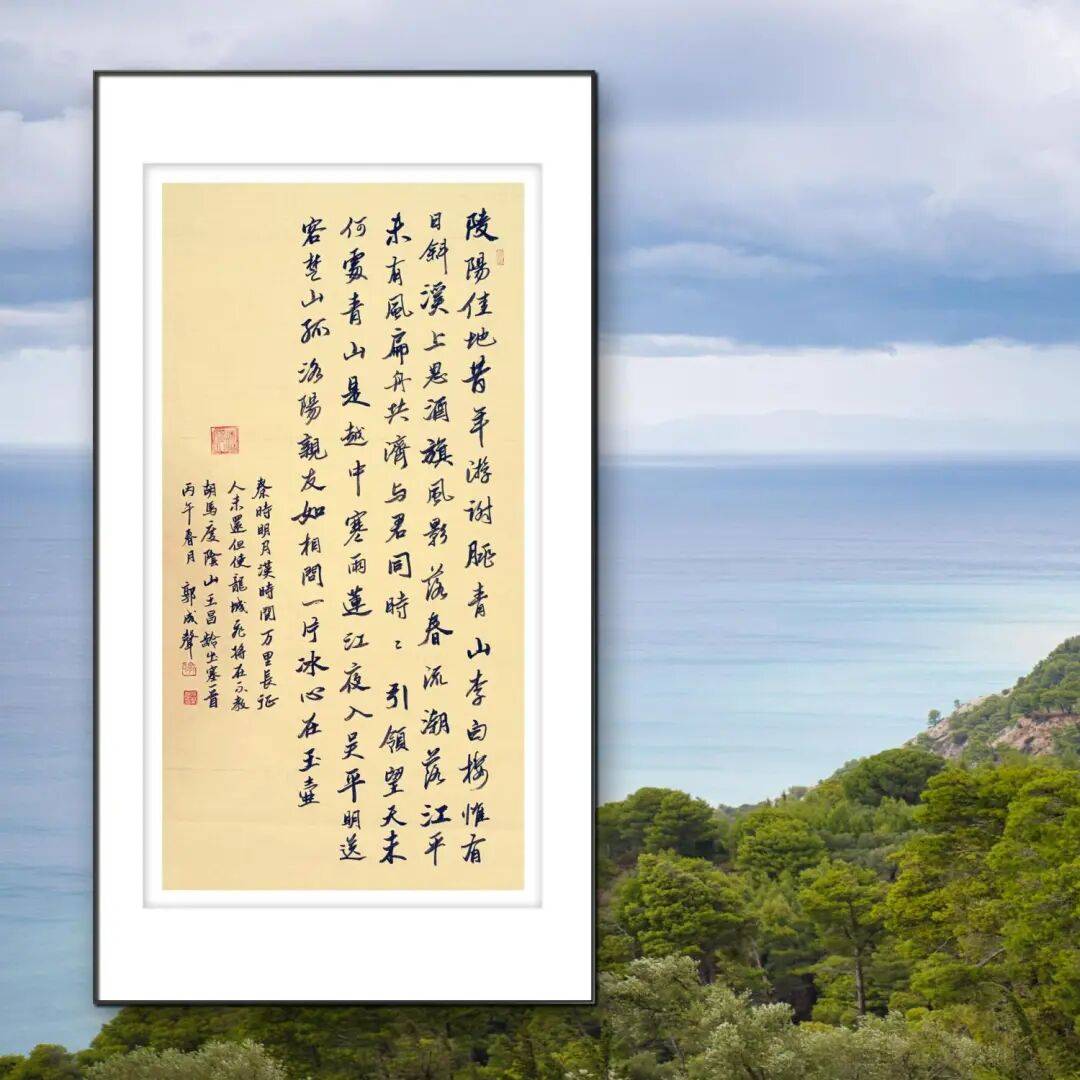 陵陽佳地昔年游謝朓青山李白楼惟有
日斜溪上思酒旗風影落春流潮落江平
未有風扁舟共濟与君同時〻引領望天末
何處青山是越中寒雨蓮江夜入吴平明送
客楚山孤洛陽親友如相問一片冰心在玉壺
秦時明月漢時関万里長征
人未還但使龍城飛將在不教
胡馬度陰山王昌齡出塞一首
丙午春月 郭成聲